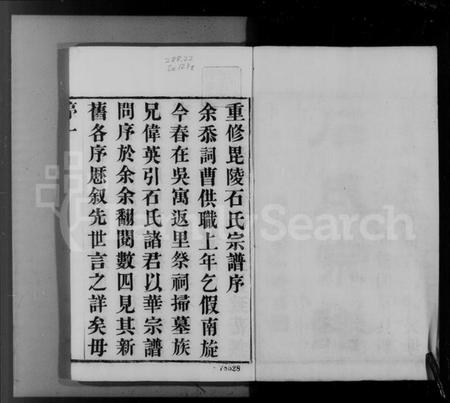 重修毘陵石氏宗譜序
余忝詞曹供職上年乞假南旋
今春在吳寓返里祭祠掃墓族
兄偉英引石氏諸君以華宗譜
問序於余余翻閱數四見其新
舊各序歷叙先世言之詳矣毋
序一
78828